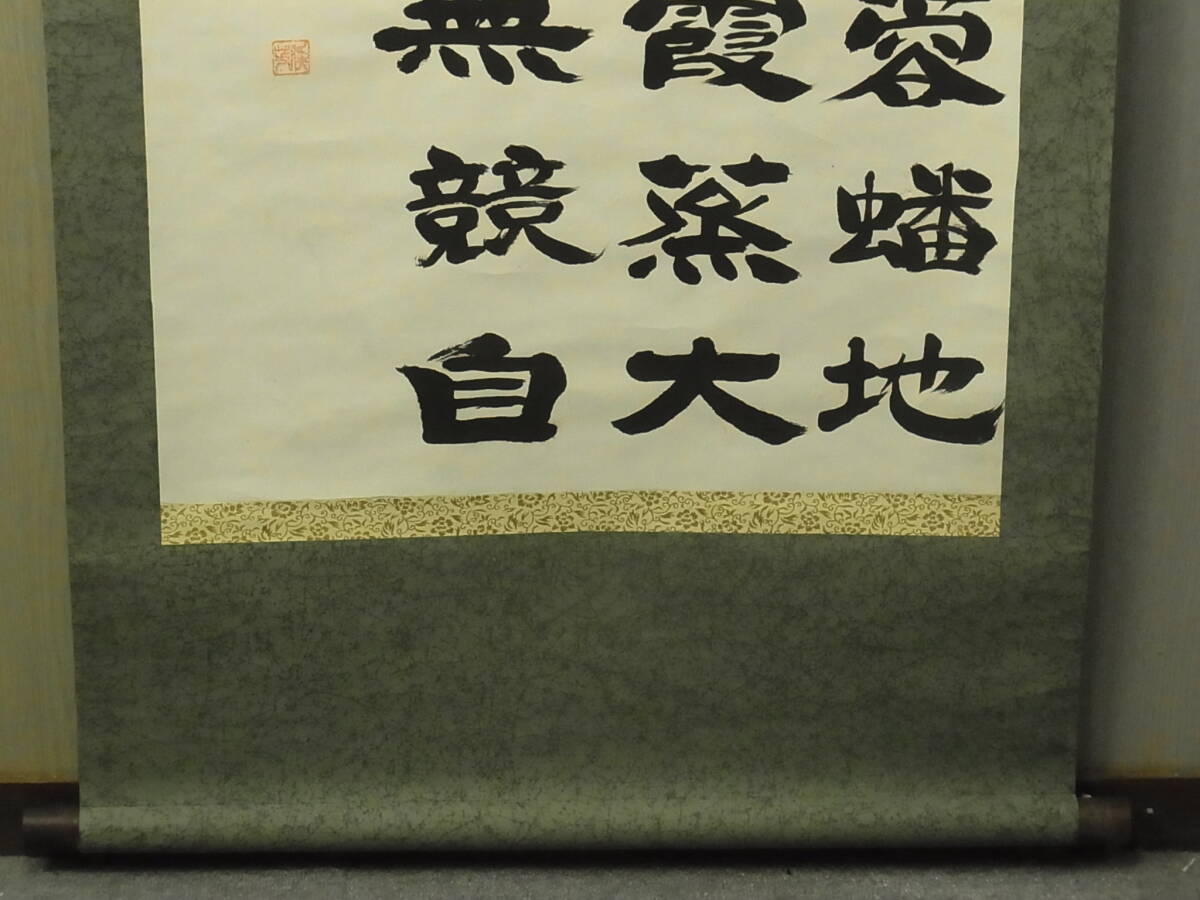 蓉蟠地
霞蒸大
無競自